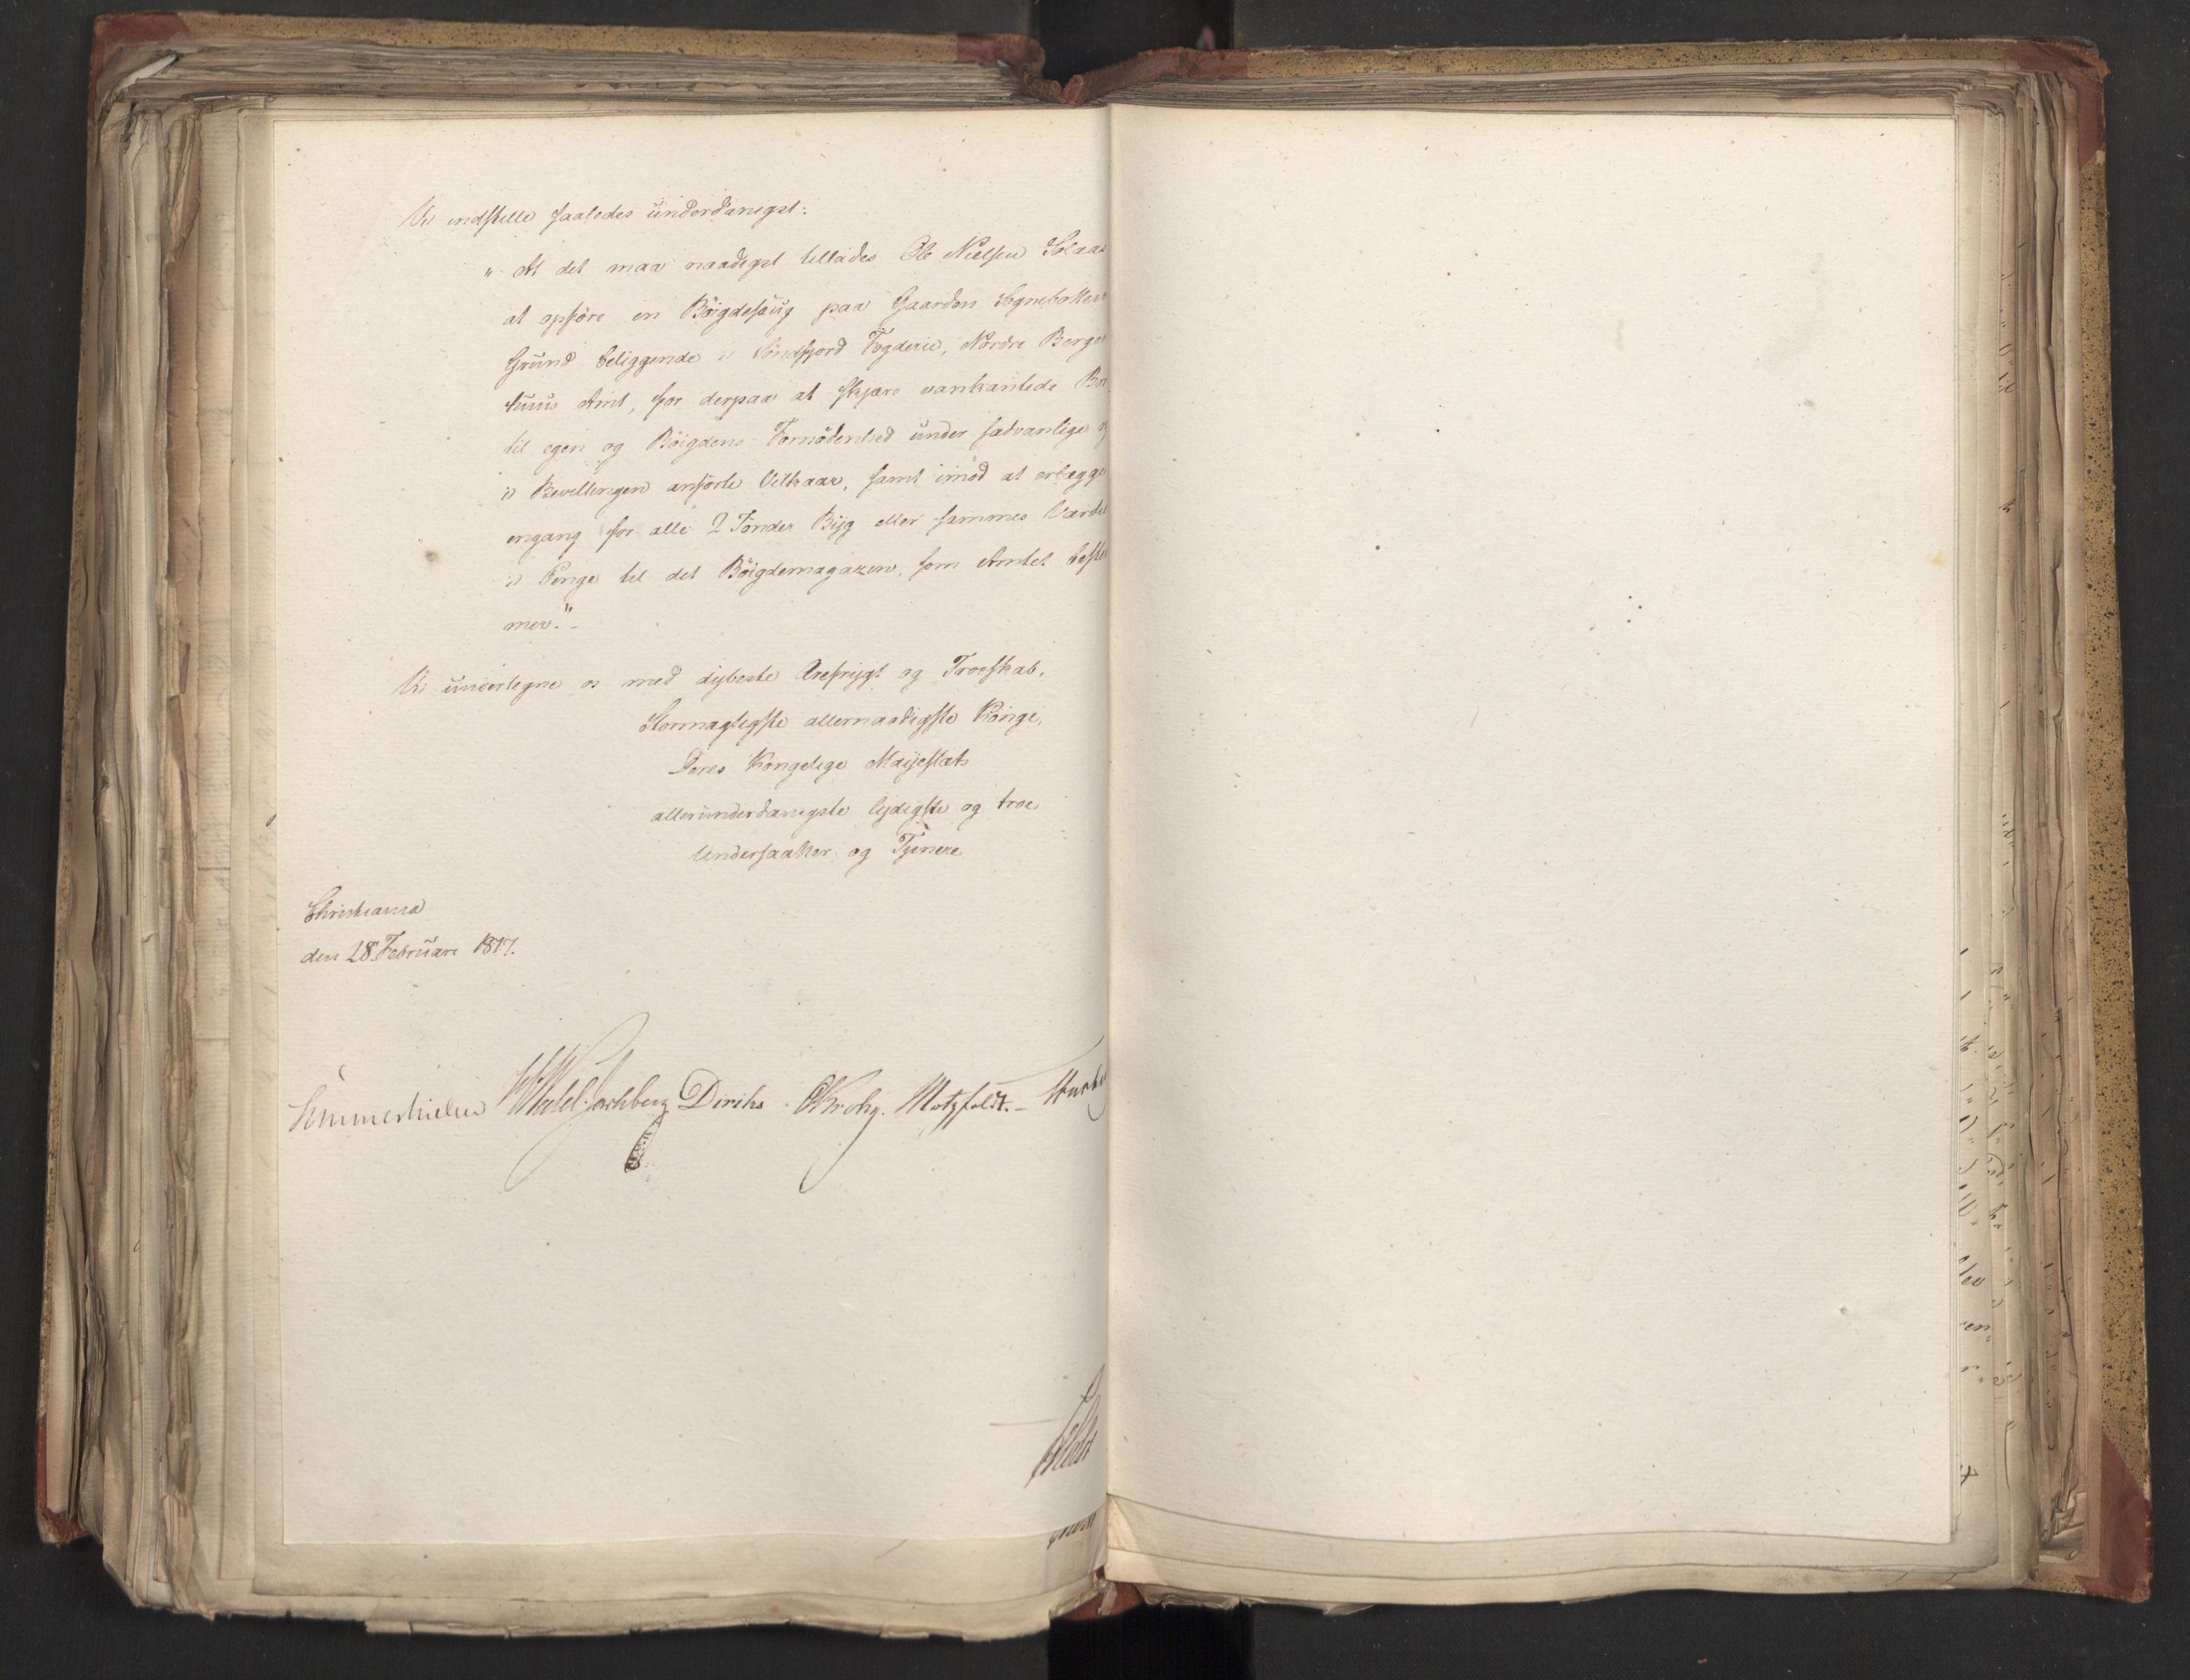 Vi indstille saaledes underdanigst:
"At det maa naadigst tillades Ole Nielsen Solaas
at opføre en Bøigdesaug paa Gaarden Sognebottens
Grund beliggende i Søndfjord Fogderie, Nordre Bergen
huus Amt, for derpaa at skjære vankantede Bor
til egen og Bøigdens Fornødenhed under sædvanlige og
i Bevillingen anførte Vilkaar, samt imod at erlægge
engang for alle 2 Tønder Byg eller sammes Værdie
i Penge til det Bøigdemagazin, som Amtet bestem
mer."-
Vi undertegne os med dybeste Ærefrygt og Troeskab,
Stormægtigste allernaadigste Konge,
Deres Kongelige Majestæts
allerunderdanigste lydigste og troe
Undersaatter og Tjenere
Christiania
den 28 Februari 1817.
Sommerhielm Wedel-Jarlsberg Diriks CKrohg. Motzfeldt.-